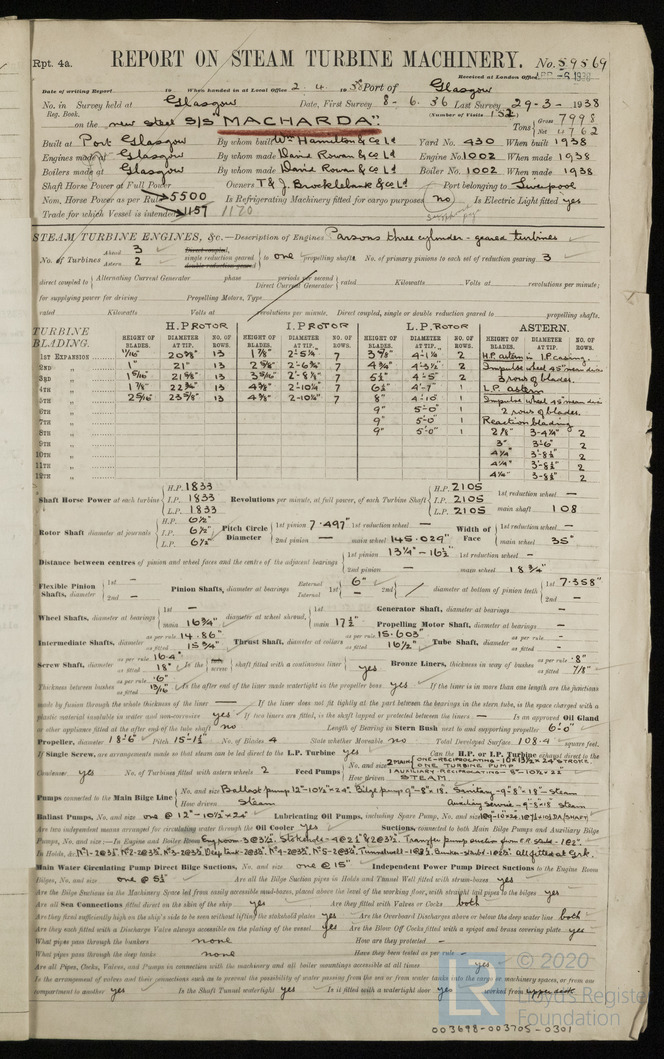 Rpt. 4a. REPORT ON STEAM TURBINE MACHINERY. No. 59569
Received at London Office APR -6 1938
Date of writing Report 19 When handed in at Local Office 2. 4. 1938 Port of Glasgow
No. in Survey held at Glasgow Date, First Survey 8-6.36 Last Survey 29-3-1938
Reg. Book. (Number of Visits 152)
on the new steel S/S "MACHARDA". Tons Gross 7998 Net 4762
Built at Port Glasgow By whom built Wm Hamilton & Co Ld Yard No. 430 When built 1938
Engines made at Glasgow By whom made David Rowan & Co Ld Engine No. 1002 When made 1938
Boilers made at Glasgow By whom made David Rowan & Co Ld Boiler No. 1002 When made 1938
Shaft Horse Power at Full Power 5500 Owners T & J. Brocklebank & Co Ld Port belonging to Liverpool
Nom. Horse Power as per Rule 1157 1170 Is Refrigerating Machinery fitted for cargo purposes no Is Electric Light fitted yes
Trade for which Vessel is intended
STEAM TURBINE ENGINES, &c.—Description of Engines Parsons three cylinder - geared turbines
No. of Turbines Ahead 3 Astern 2 Direct coupled, single reduction geared double reduction geared to one propelling shafts. No. of primary pinions to each set of reduction gearing 3
direct coupled to Alternating Current Generator phase periods per second Direct Current Generator rated Kilowatts Volts at revolutions per minute;
for supplying power for driving Propelling Motors, Type
rated Kilowatts Volts at revolutions per minute. Direct coupled, single or double reduction geared to propelling shafts.
TURBINE BLADING. H.P ROTOR I.P ROTOR L.P. ROTOR ASTERN.
HEIGHT OF BLADES. DIAMETER AT TIP. NO. OF ROWS. HEIGHT OF BLADES. DIAMETER AT TIP. NO. OF ROWS. HEIGHT OF BLADES. DIAMETER AT TIP. NO. OF ROWS. HEIGHT OF BLADES. DIAMETER AT TIP. NO. OF ROWS.
1ST EXPANSION 11/16" 20 3/8" 13 1 7/8" 2'-5 1/4" 7 3 7/8" 4'-1 1/4" 2 H.P. astern in I.P casing.
2ND " 1" 21" 13 2 5/8" 2'-6 3/4" 7 4 3/4" 4'-3 1/2" 2 Impulse wheel 45" mean dia
3RD " 1 5/16" 21 5/8" 13 3 5/16" 2'-8 1/8" 7 5 1/2" 4'-5" 2 3 rows of blades.
4TH " 1 7/8" 22 3/4" 13 4 3/8" 2'-10 1/4" 7 6 1/2" 4'-7" 1 L.P. astern
5TH " 2 5/16" 23 5/8" 13 4 3/8" 2'-10 1/4" 7 8" 4'-10" 1 Impulse wheel 45" mean dia
6TH " 9" 5'-0" 1 2 rows of blades.
7TH " 9" 5'-0" 1 Reaction blading
8TH " 9" 5'-0" 1 2 7/8" 3'-4 3/4" 2
9TH " 3" 3'-6" 2
10TH " 4 1/4" 3'-8 1/2" 2
11TH " 4 1/4" 3'-8 1/2" 2
12TH " 4 1/4" 3'-8 1/2" 2
Shaft Horse Power at each turbine H.P. 1833 I.P. 1833 L.P. 1833 Revolutions per minute, at full power, of each Turbine Shaft H.P. 2105 I.P. 2105 L.P. 2105 1st reduction wheel — main shaft 108
Rotor Shaft diameter at journals H.P. 6 1/2" I.P. 6 1/2" L.P. 6 1/2" Pitch Circle Diameter 1st pinion 7.497" 1st reduction wheel — 2nd pinion — main wheel 145.029" Width of Face 1st reduction wheel — main wheel 35"
Distance between centres of pinion and wheel faces and the centre of the adjacent bearings 1st pinion 13 1/4" - 16 1/2" 1st reduction wheel — 2nd pinion — main wheel 18 3/4"
Flexible Pinion Shafts, diameter 1st — 2nd — Pinion Shafts, diameter at bearings External 6" Internal — 1st 2nd diameter at bottom of pinion teeth 1st 7.358" 2nd —
Wheel Shafts, diameter at bearings 1st — main 16 3/4" diameter at wheel shroud, 1st — main 17 1/2" Generator Shaft, diameter at bearings — Propelling Motor Shaft, diameter at bearings —
Intermediate Shafts, diameter as per rule 14.86" as fitted 15 3/4" Thrust Shaft, diameter at collars as per rule 15.603" as fitted 16 1/2" Tube Shaft, diameter as per rule - as fitted -
Screw Shaft, diameter as per rule 16.4" as fitted 18" Is the screw shaft fitted with a continuous liner yes Bronze Liners, thickness in way of bushes as per rule .8" as fitted 7/8"
Thickness between bushes as per rule .6" as fitted 13/16" Is the after end of the liner made watertight in the propeller boss yes If the liner is in more than one length are the junctions
made by fusion through the whole thickness of the liner — If the liner does not fit tightly at the part between the bearings in the stern tube, is the space charged with a
plastic material insoluble in water and non-corrosive yes If two liners are fitted, is the shaft lapped or protected between the liners — Is an approved Oil Gland
or other appliance fitted at the after end of the tube shaft no Length of Bearing in Stern Bush next to and supporting propeller 6'-0"
Propeller, diameter 18'-6" Pitch 15'-1 1/2" No. of Blades 4 State whether Moveable no Total Developed Surface 108.4 square feet.
If Single Screw, are arrangements made so that steam can be led direct to the L.P. Turbine yes Can the H.P. or I.P. Turbine exhaust direct to the
Condenser yes No. of Turbines fitted with astern wheels 2 Feed Pumps No. and size 2 MAIN ONE-RECIPROCATING-10"x13 1/2"x24" STROKE. ONE TURBINE PUMP 1 AUXILIARY RECIPROCATING-8"-10 1/2"x22" How driven STEAM
Pumps connected to the Main Bilge Line No. and size Ballast pump 12"-10 1/2"x24" Bilge pump 9"-8"x18". Sanitary-9"-8"-18"-steam How driven Steam Auxiliary service-9"-8"x18 steam
Ballast Pumps, No. and size one @ 12"-10 1/2"x24" Lubricating Oil Pumps, including Spare Pump, No. and size
Are two independent means arranged for circulating water through the Oil Cooler yes Suctions, connected to both Main Bilge Pumps and Auxiliary Bilge
Pumps, No. and size:—In Engine and Boiler Room
In Holds, &c.
Main Water Circulating Pump Direct Bilge Suctions, No. and size one @ 15" Independent Power Pump Direct Suctions to the Engine Room
Bilges, No. and size one @ 5 1/2" Are all the Bilge Suction pipes in Holds and Tunnel Well fitted with strum-boxes yes
Are the Bilge Suctions in the Machinery Space led from easily accessible mud-boxes, placed above the level of the working floor, with straight tail pipes to the bilges yes
Are all Sea Connections fitted direct on the skin of the ship yes Are they fitted with Valves or Cocks both
Are they fixed sufficiently high on the ship's side to be seen without lifting the stokehold plates yes Are the Overboard Discharges above or below the deep water line both
Are they each fitted with a Discharge Valve always accessible on the plating of the vessel yes Are the Blow Off Cocks fitted with a spigot and brass covering plate yes
What pipes pass through the bunkers none How are they protected -
What pipes pass through the deep tanks none Have they been tested as per rule -
Are all Pipes, Cocks, Valves, and Pumps in connection with the machinery and all boiler mountings accessible at all times yes
Is the arrangement of valves and their connections such as to prevent the possibility of water passing from the sea or from water tanks into the cargo or machinery spaces, or from one
compartment to another yes Is the Shaft Tunnel watertight yes Is it fitted with a watertight door yes worked from upper deck
© 2020
LR Lloyd's Register Foundation
003698-003705-0301